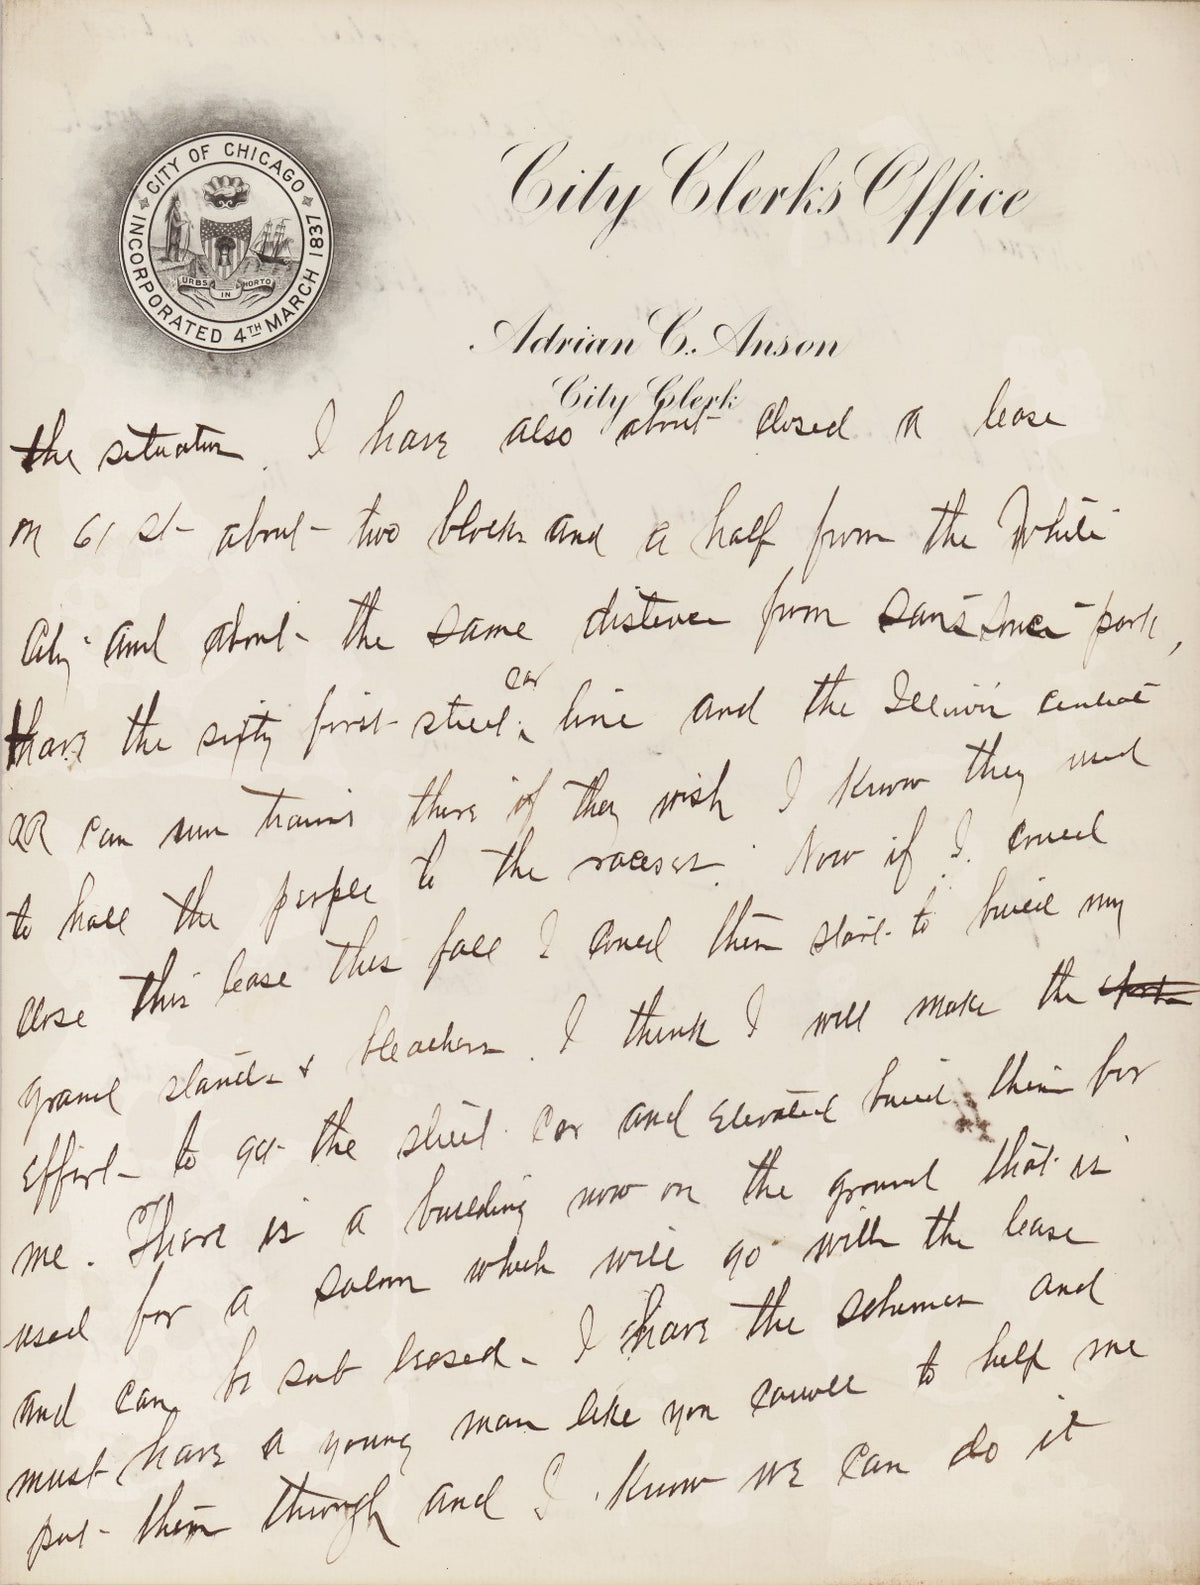 CITY OF CHICAGO
INCORPORATED 4TH MARCH 1837
URBS IN HORTO
City Clerks Office
Adrian C. Anson
City Clerk
the situation. I have also about closed a lease
on 61 St about two blocks and a half from the White
City and about the same distance from Sans Souci park,
have the sixty first street car line and the Illinois central
RR can run trains there if they wish I know they used
to hall the people to the races. Now if I could
close this lease this fall I could then start to build my
grand stands & bleachers. I think I will make the
effort to get the street car and Elevated build them for
me. There is a building now on the ground that is
used for a saloon which will go with the lease
and can be sub leased. I have the schemes and
must have a young man like you to help me
put them through and I know we can do it